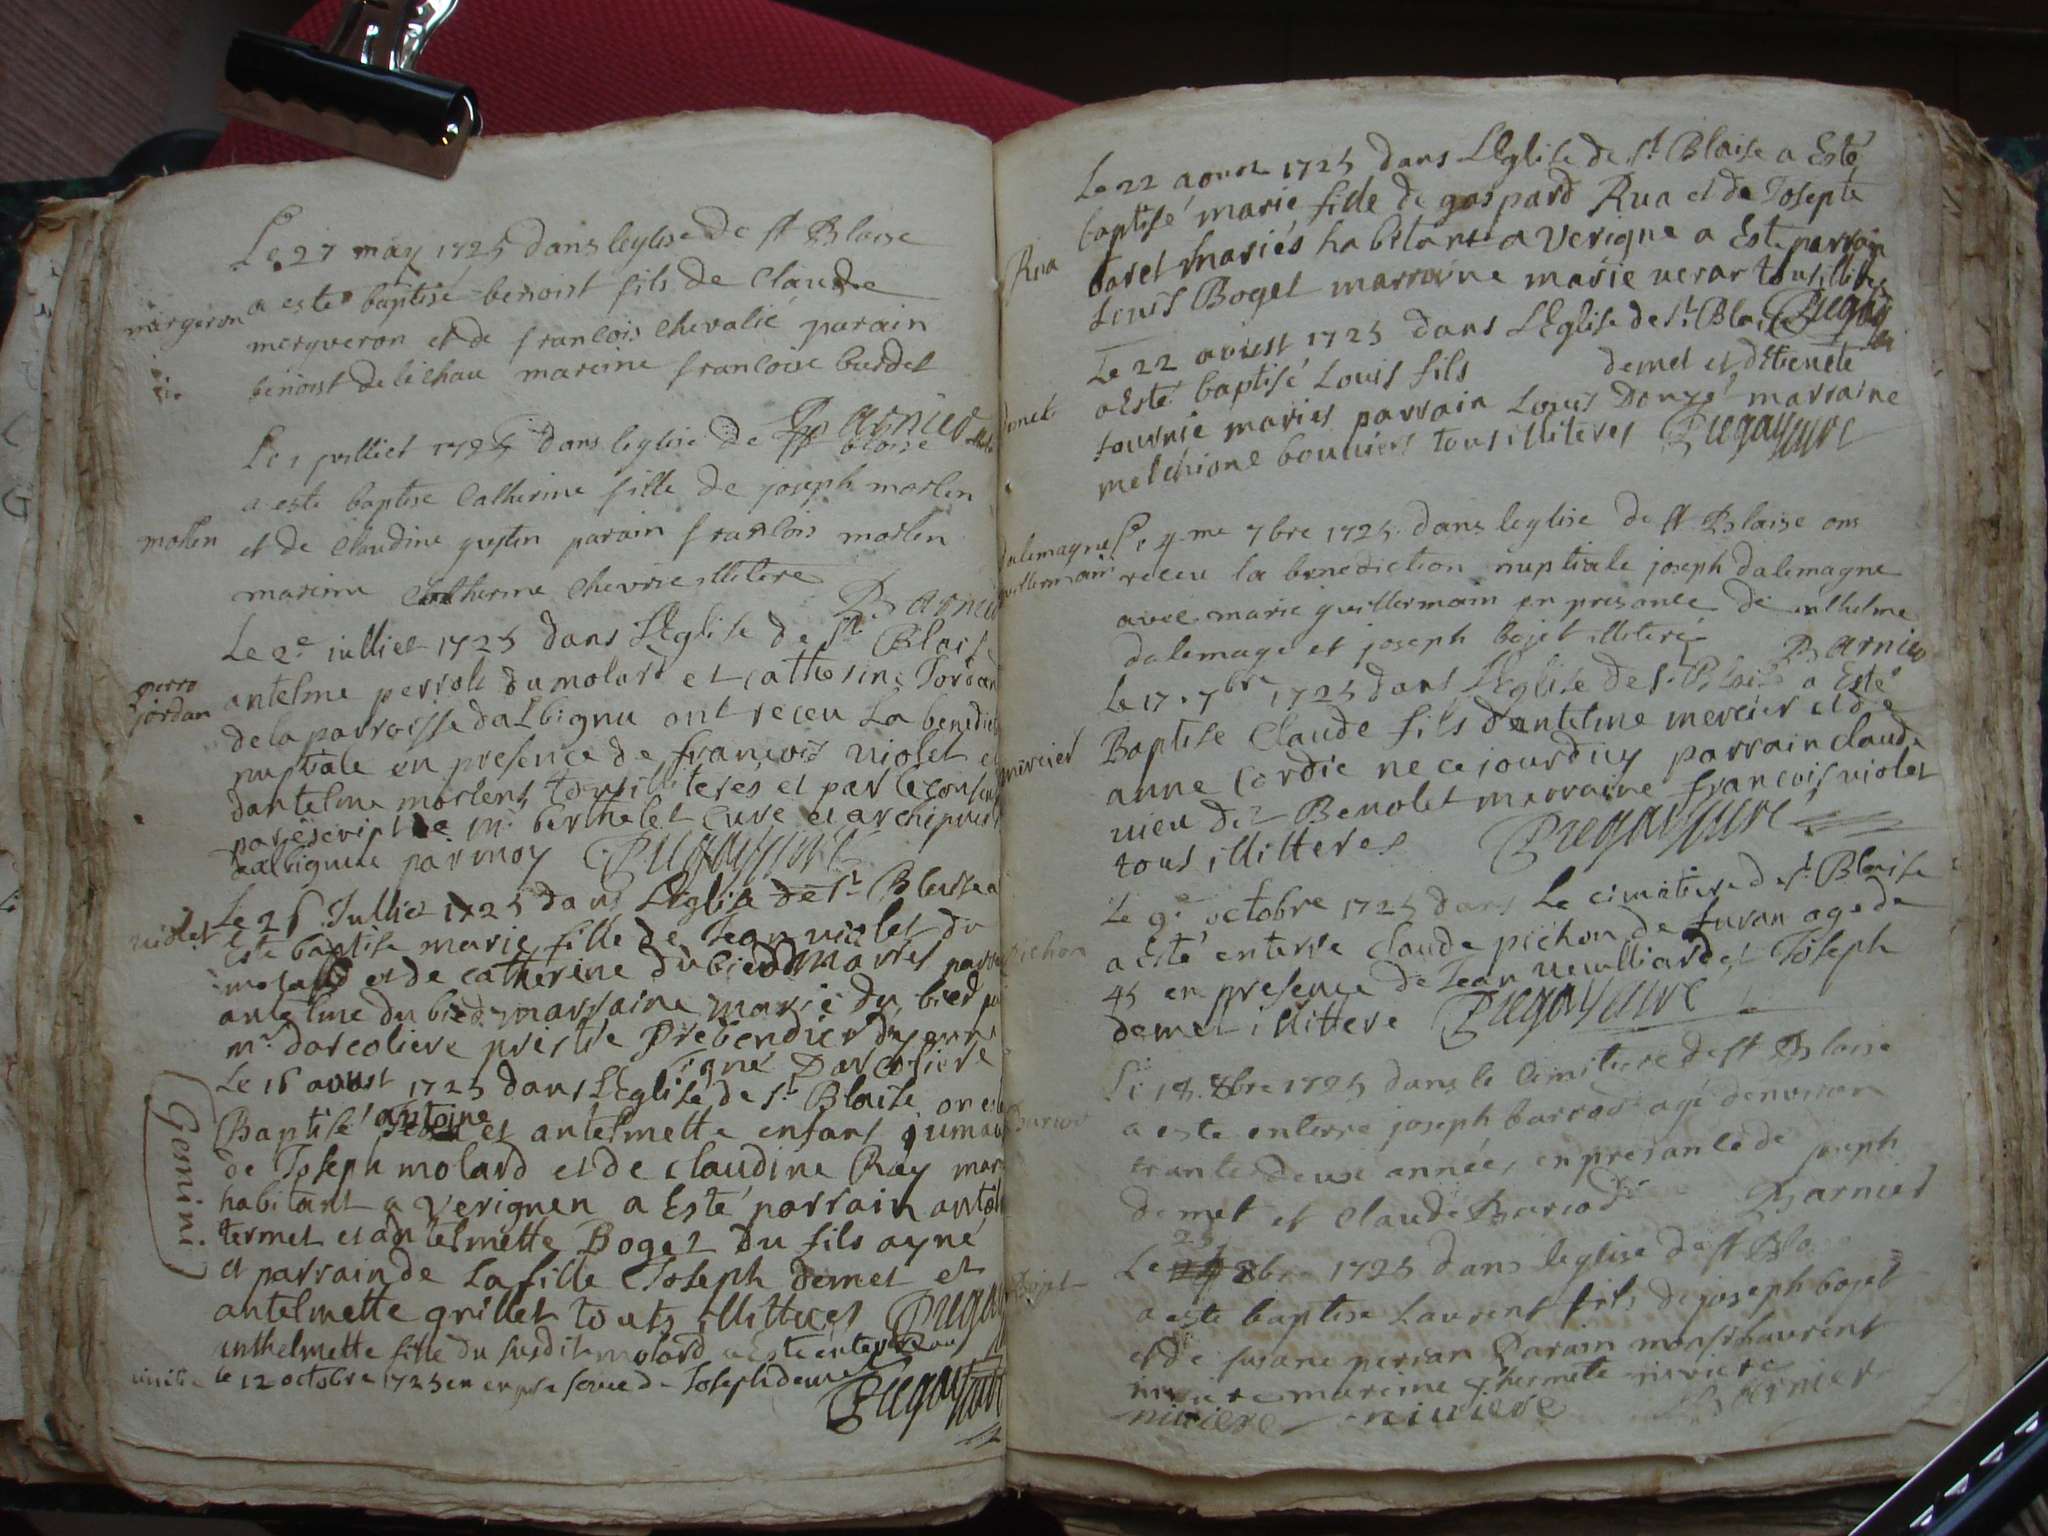 Le 27 may 1725 dans leglise de st Blaise
margeron
a esté baptisé benoist fils de Claude
mergueron et de francois Chevalié parain
benoist delichau mareine francoise burdet
Barnier
Le 1 juilliet 1725 dans leglise de st blaise
a este baptise Catherine fille de joseph morlen
morlen
et de Claudine gusten parain francois morlen
mareine Catherine Chevrie illitere
Barnier
Le 2e iulliet 1725 dans LEglise de St Blaise
perro
jordan
antelme perrolt du molard et catherine Jordan
de la parroisse dalbignu ont receu La benedict
nuptiale en presence de francois violet et
dantelme morlens tous illiteres et par le consent
par escript de mr berthelet Cure et archiprest
dalbigneu par moy Puegay cure
Le 26 Julliet 1725 dans LEglise de St Blaise a
violet
Este baptise marie fille de Jean violet du
molard et de catherine dubied mariés parra
antelme dubied marraine marie du bied
mr darcoliere prestre Prebendier
signé Darcoliere
Le 16 aoust 1725 dans LEglise de St Blaise on este
Gemini
Baptisé antoine et antelmette enfans jumau
de Joseph molard et de claudine Ray mar
habitant a Verignen a Esté parrain antoi
termet et antelmette Boget du fils ayné
et parrain de La fille Joseph demet et
antelmette grillet touts illitteres Puegay
anthelmette fille du susdit molard a Esté enterré
le 12 octobre 1725 en presence de Joseph demet
Puegay cure
Le 22 aoust 1725 dans LEglise de St Blaise a Esté
baptisé marie fille de gaspard Rua et de Josepte
Rua
baret mariés habitants a Verigne a Esté parrain
Louis Boget marraine marie verar tous illiteres
Puegay
Le 22 aoust 1725 dans LEglise de St Blaise
a Esté baptisé Louis fils demet et detienete
demet
tournie mariés parrain Louis Donzé marraine
melchione bouviers tous illiteres Puegay cure
dalemagne
guillermain
Le 4me 7bre 1725 dans leglise de st Blaise ont
receu la benediction nuptiale joseph dalemagne
avec marie guillermain en presance de anthelme
dalemage et joseph bojet illiteré
Barnier
Le 17.7bre 1725 dans LEglise de St Blaise a Esté
Baptise Claude fils dantelme mercier et de
mercier
anne Cordie ne ce jourduy parrain claude
vieu dit Bemolet marraine francoise violet
tous illitteres Puegay cure
Le 9e octobre 1725 dans Le cimitiere de St Blaise
a Esté enterre Claude pichon de Luran age de
pichon
45 en presence de Jean veuilliard et Joseph
demet illittere Puegay cure
Le 18.8bre 1725 dans le Cimitiere de st Blaise
a este enterré joseph barrod agé denviron
Barrod
trante deux années en presance de joseph
demet et Claude Barrod Barnier
Le 25 8bre 1725 dans leglise de st Bla
Bojet
a este baptise Laurent fils de joseph bojet
et de susane persan Parain monsr Laurent
niviere mareine thermete niviere
niviere niviere Barnier